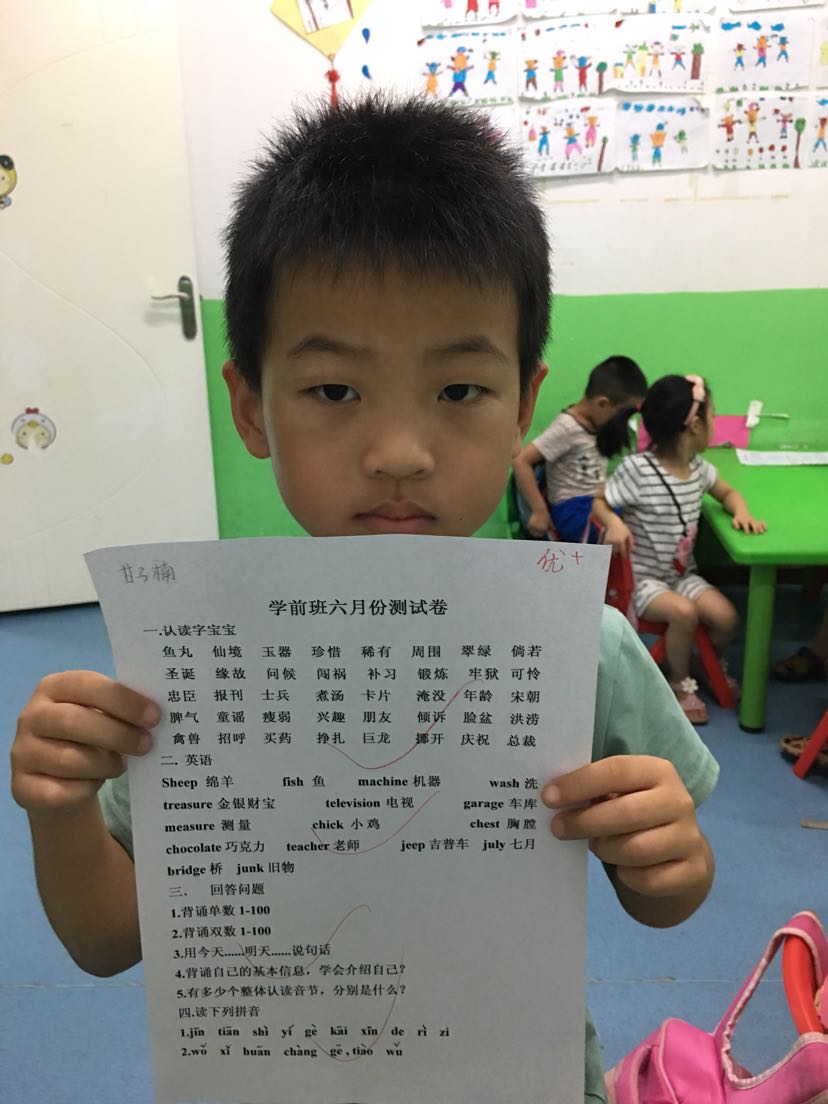 甘子楠 优+
学前班六月份测试卷
一.认读字宝宝
鱼丸 仙境 玉器 珍惜 稀有 周围 翠绿 倘若
圣诞 缘故 问候 闯祸 补习 锻炼 牢狱 可怜
忠臣 报刊 士兵 煮汤 卡片 淹没 年龄 宋朝
脾气 童谣 瘦弱 兴趣 朋友 倾诉 脸盆 洪涝
禽兽 招呼 买药 挣扎 巨龙 挪开 庆祝 总裁
二. 英语
Sheep 绵羊 fish 鱼 machine 机器 wash 洗
treasure 金银财宝 television 电视 garage 车库
measure 测量 chick 小鸡 chest 胸膛
chocolate 巧克力 teacher 老师 jeep 吉普车 july 七月
bridge 桥 junk 旧物
三. 回答问题
1.背诵单数 1-100
2.背诵双数 1-100
3.用今天......明天......说句话
4.背诵自己的基本信息，学会介绍自己？
5.有多少个整体认读音节，分别是什么？
四.读下列拼音
1.jīn tiān shì yí gè kāi xīn de rì zi
2.wǒ xǐ huān chàng gē , tiào wǔ